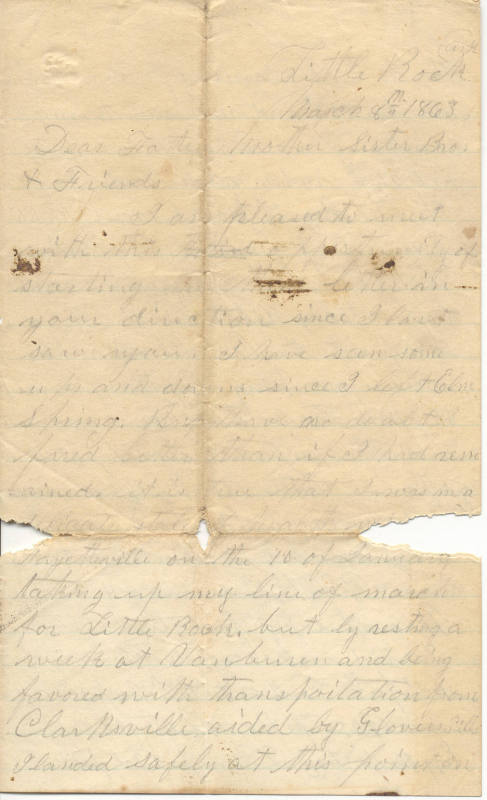 Ark
Little Rock
March 8th 1863
Dear Father Mother Sister Bros
& Friends
I am pleased to meet
with this opportunity of
starting letter in
your direction since I last
saw you. I have seen some
ups and downs since I left Elm
Spring. But have no doubt I
fared better than if I had rem
ained. it is true that I was in a
delicate state of health
Fayetteville on the 10 of January
taking up my line of march
for Little Rock. but by resting a
week at Vanburen and being
favored with transpoitation from
Clarksville aided by
I landed safely at this point on